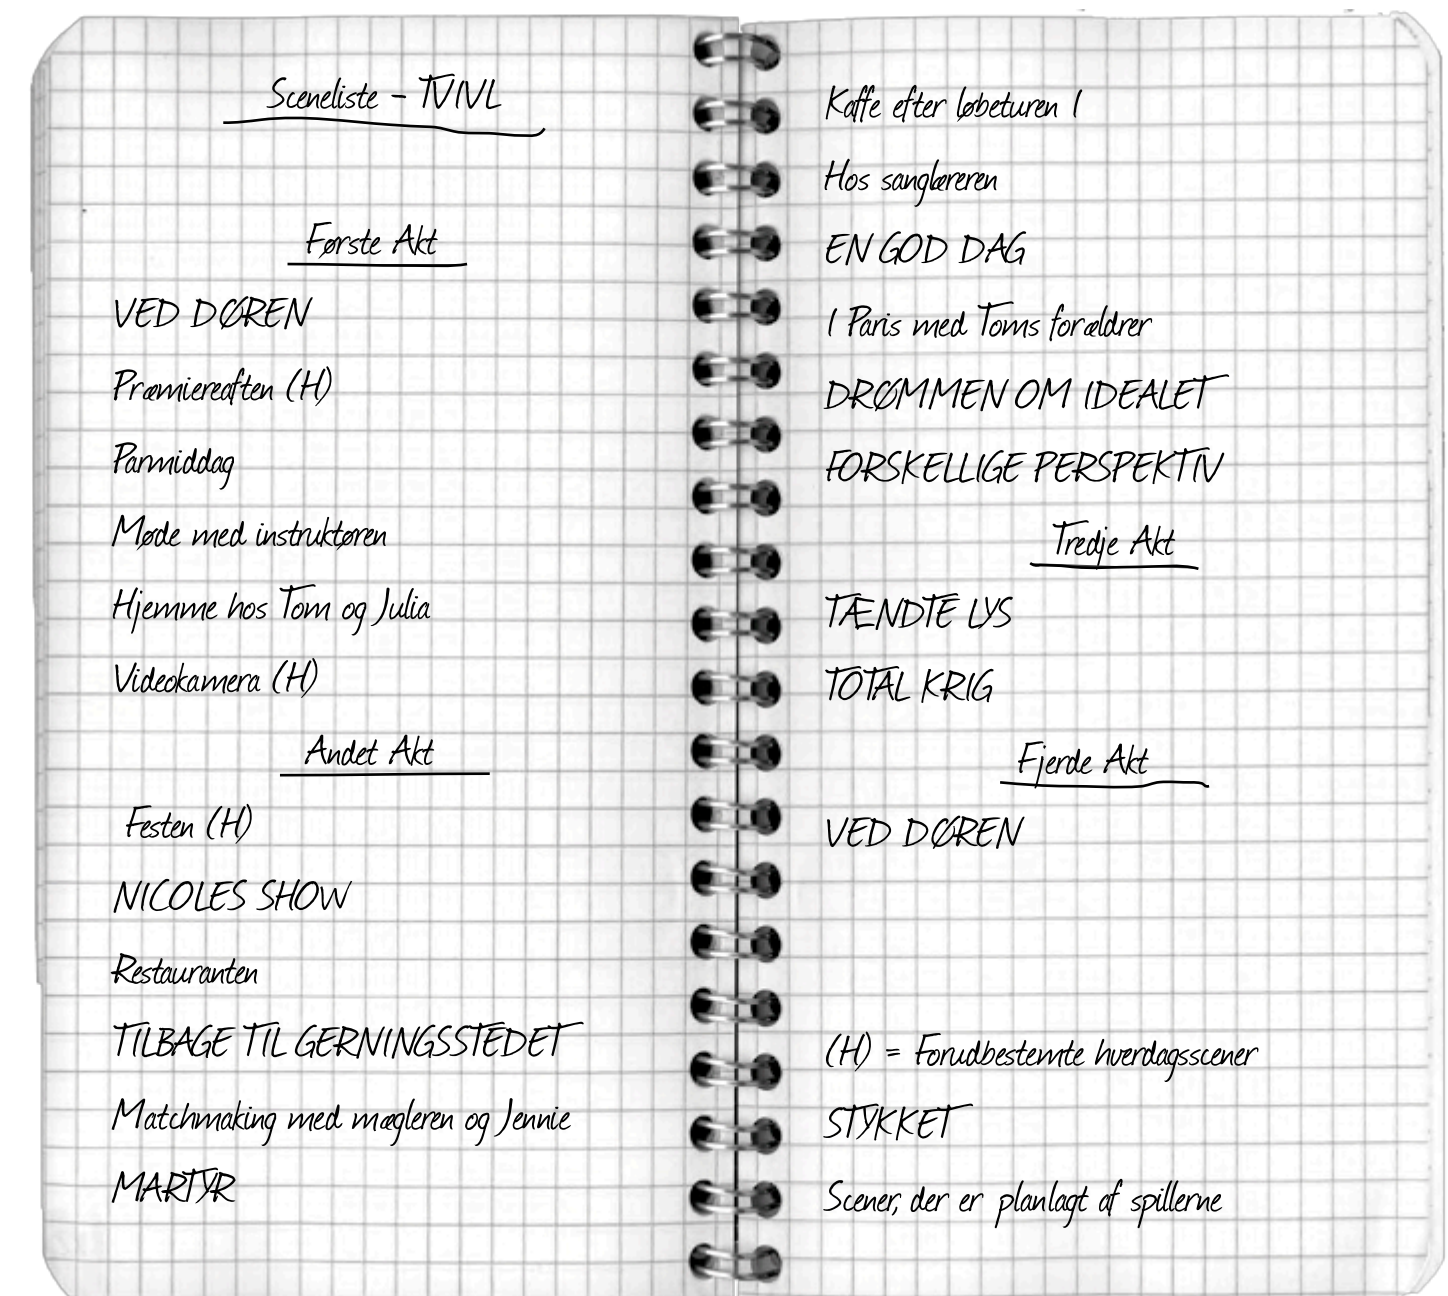 Sceneliste - TVIVL
Første Akt
VED DØREN
Præmiereaften (H)
Parmiddag
Møde med instruktøren
Hjemme hos Tom og Julia
Videokamera (H)
Andet Akt
Festen (H)
NICOLES SHOW
Restauranten
TILBAGE TIL GERNINGSSTEDET
Matchmaking med mægleren og Jennie
MARTYR
Kaffe efter løbeturen 1
Hos sanglæreren
EN GOD DAG
I Paris med Toms forældrer
DRØMMEN OM IDEALET
FORSKELLIGE PERSPEKTIV
Tredje Akt
TÆNDTE LYS
TOTAL KRIG
Fjerde Akt
VED DØREN
(H) = Forudbestemte hverdagsscener
STYKKET
Scener, der er planlagt af spillerne